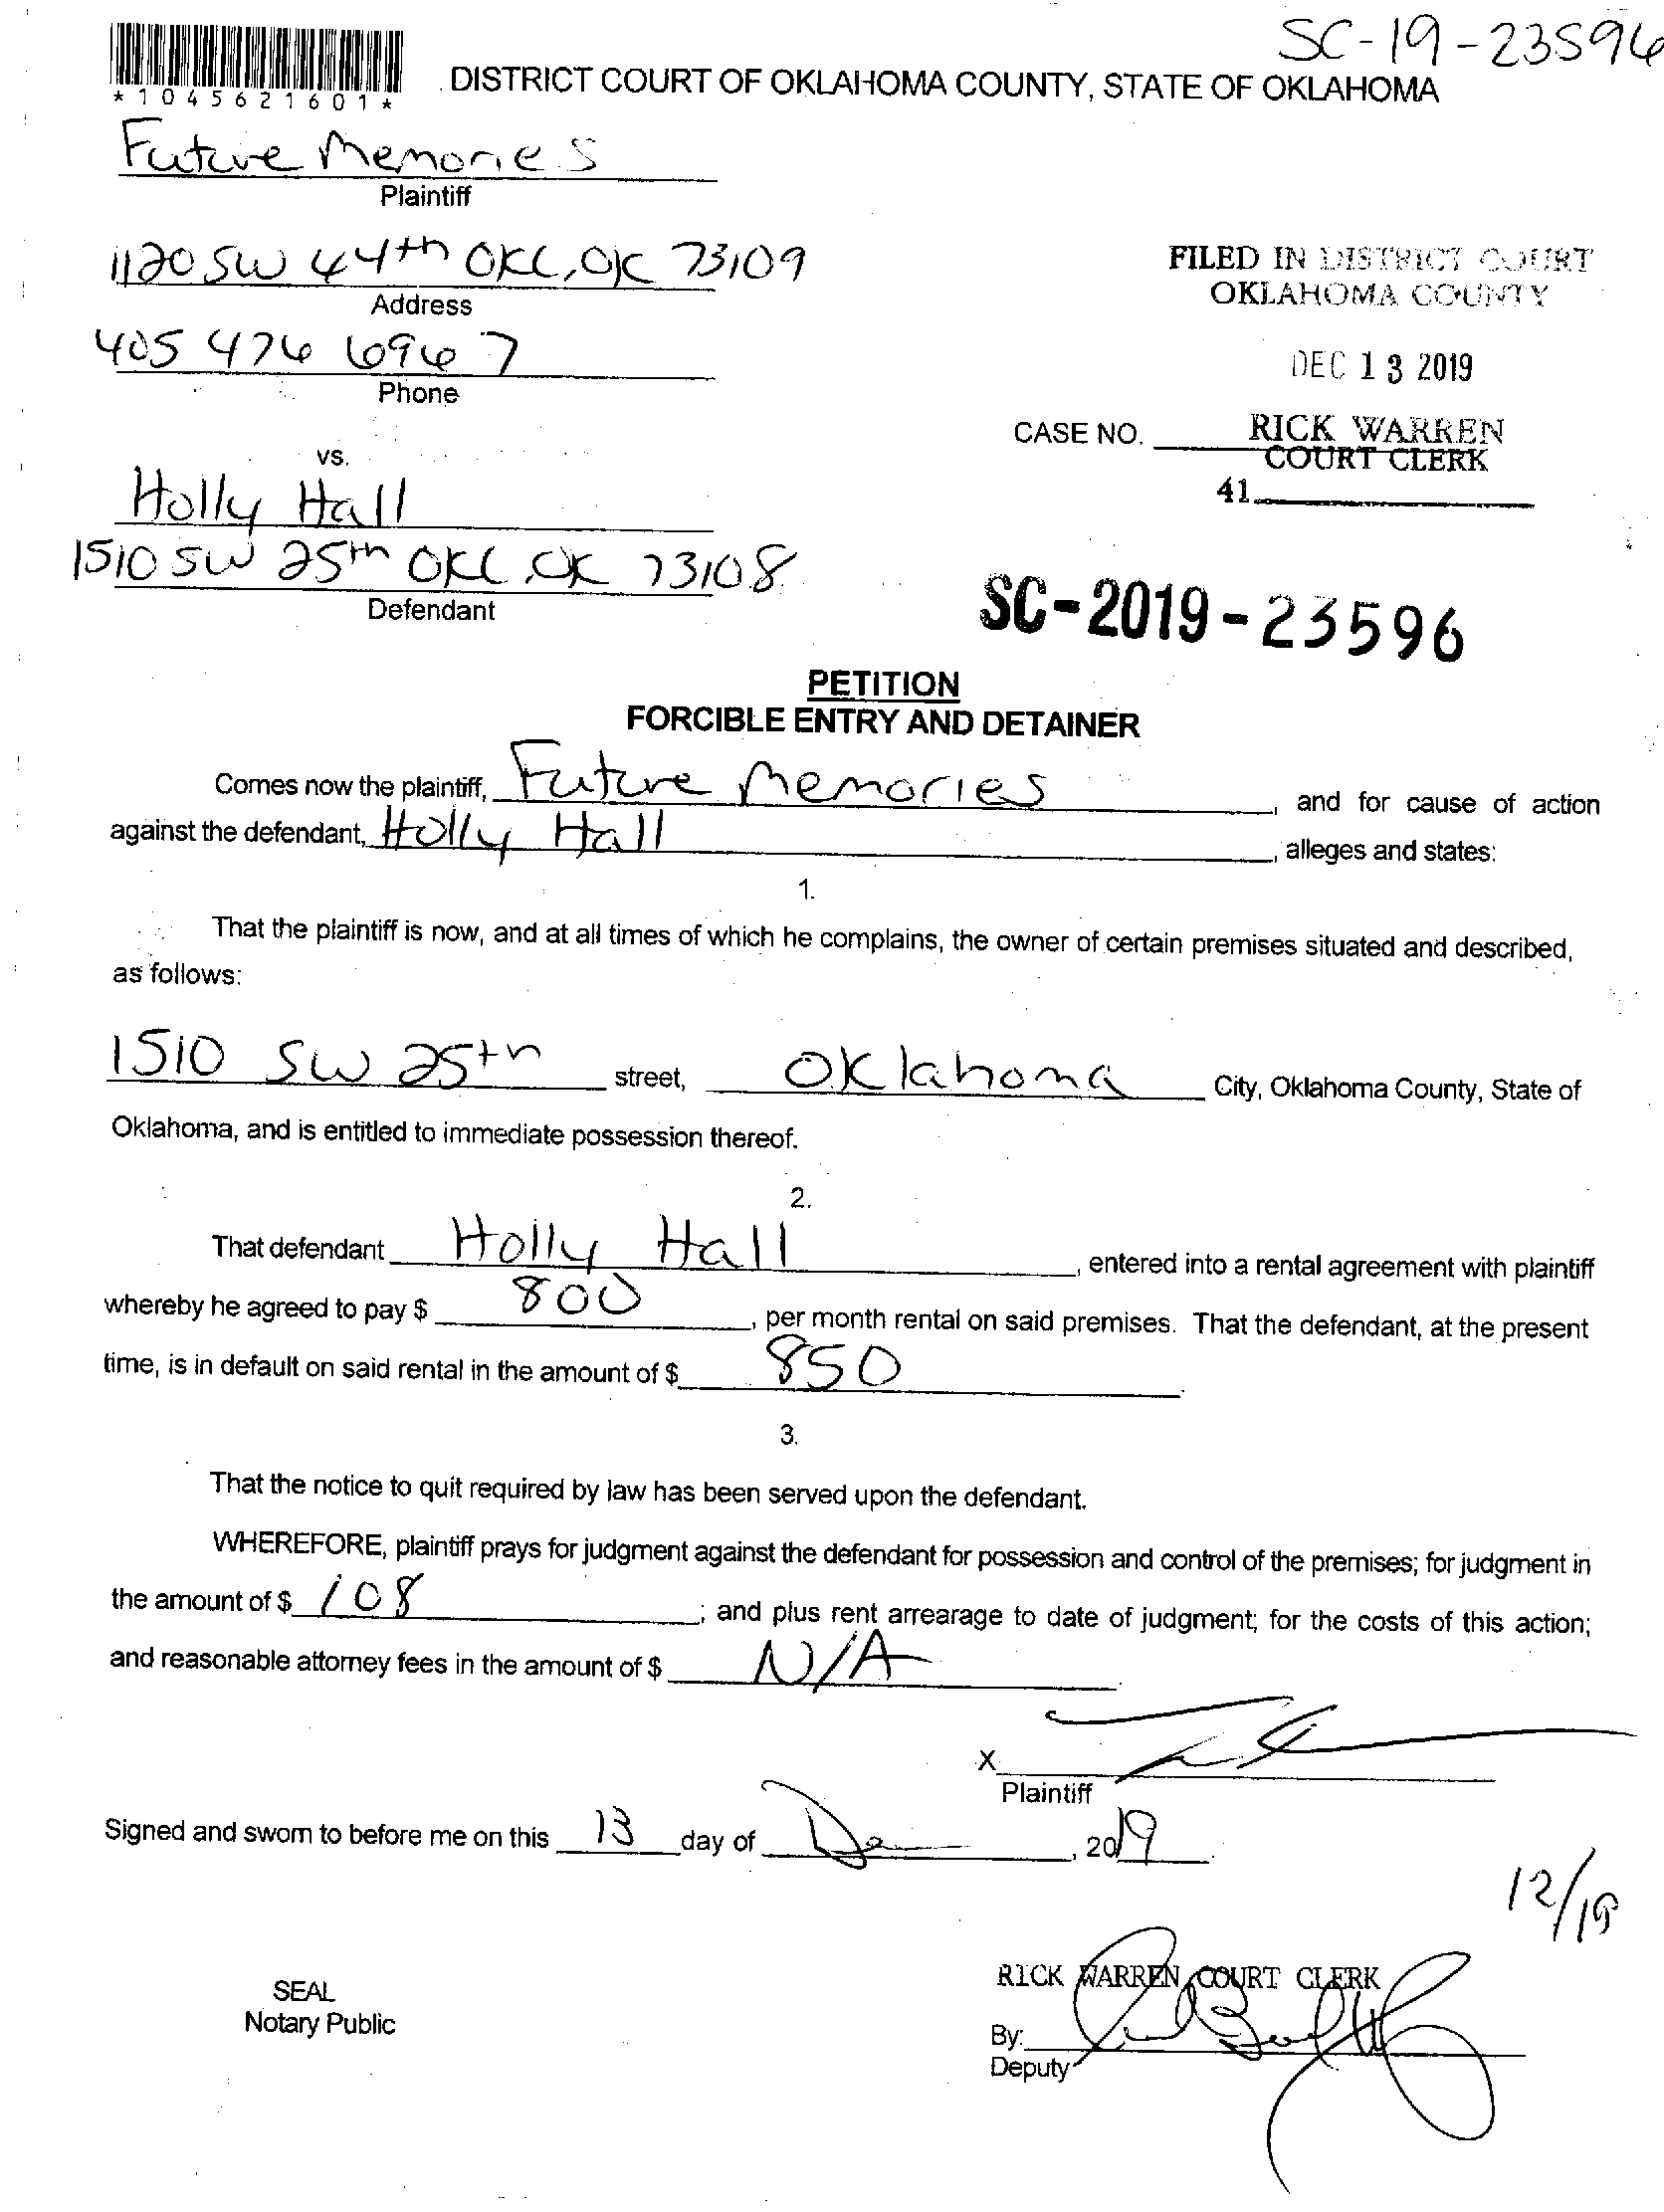 SC-19-23596
*1045621601*
DISTRICT COURT OF OKLAHOMA COUNTY, STATE OF OKLAHOMA
Future Memories
Plaintiff
1120 SW 44th OKC, OK 73109
Address
405 476 6967
Phone
FILED IN DISTRICT COURT
OKLAHOMA COUNTY
DEC 13 2019
RICK WARREN
COURT CLERK
CASE NO.
41
vs.
Holly Hall
1510 SW 25th OKC, OK 73108
Defendant
SC-2019-23596
PETITION
FORCIBLE ENTRY AND DETAINER
Comes now the plaintiff, Future Memories, and for cause of action
against the defendant, Holly Hall, alleges and states:
1.
That the plaintiff is now, and at all times of which he complains, the owner of certain premises situated and described,
as follows:
1510 SW 25th street, Oklahoma City, Oklahoma County, State of
Oklahoma, and is entitled to immediate possession thereof.
2.
That defendant Holly Hall, entered into a rental agreement with plaintiff
whereby he agreed to pay $ 800, per month rental on said premises. That the defendant, at the present
time, is in default on said rental in the amount of $ 850
3.
That the notice to quit required by law has been served upon the defendant.
WHEREFORE, plaintiff prays for judgment against the defendant for possession and control of the premises; for judgment in
the amount of $ 108; and plus rent arrearage to date of judgment; for the costs of this action;
and reasonable attorney fees in the amount of $ N/A
X
Plaintiff
Signed and sworn to before me on this 13 day of De, 2019
12/19
RICK WARREN, COURT CLERK
SEAL
Notary Public
By:
Deputy